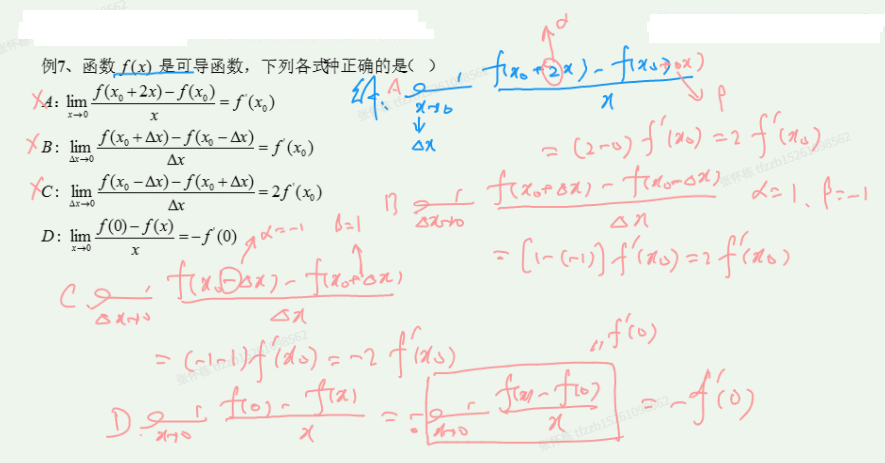 例7、函数 f(x) 是可导函数，下列各式种正确的是（ ）
A: lim_{x→0} \frac{f(x₀+2x)-f(x₀)}{x} = f'(x₀)
B: lim_{Δx→0} \frac{f(x₀+Δx)-f(x₀-Δx)}{Δx} = f'(x₀)
C: lim_{Δx→0} \frac{f(x₀-Δx)-f(x₀+Δx)}{Δx} = 2f'(x₀)
D: lim_{x→0} \frac{f(0)-f(x)}{x} = -f'(0)
α
A lim_{x→0} \frac{f(x₀+2x)-f(x₀+0x)}{x}
Δx
β
= (2-0) f'(x₀) = 2 f'(x₀)
B lim_{Δx→0} \frac{f(x₀+Δx)-f(x₀-Δx)}{Δx} α=1、β=-1
= [1-(-1)] f'(x₀) = 2 f'(x₀)
α=-1 β=1
C lim_{Δx→0} \frac{f(x₀-Δx)-f(x₀+Δx)}{Δx}
= (-1-1) f'(x₀) = -2 f'(x₀)
〃 f'(0)
D lim_{x→0} \frac{f(0)-f(x)}{x} = - lim_{x→0} \frac{f(x)-f(0)}{x} = -f'(0)